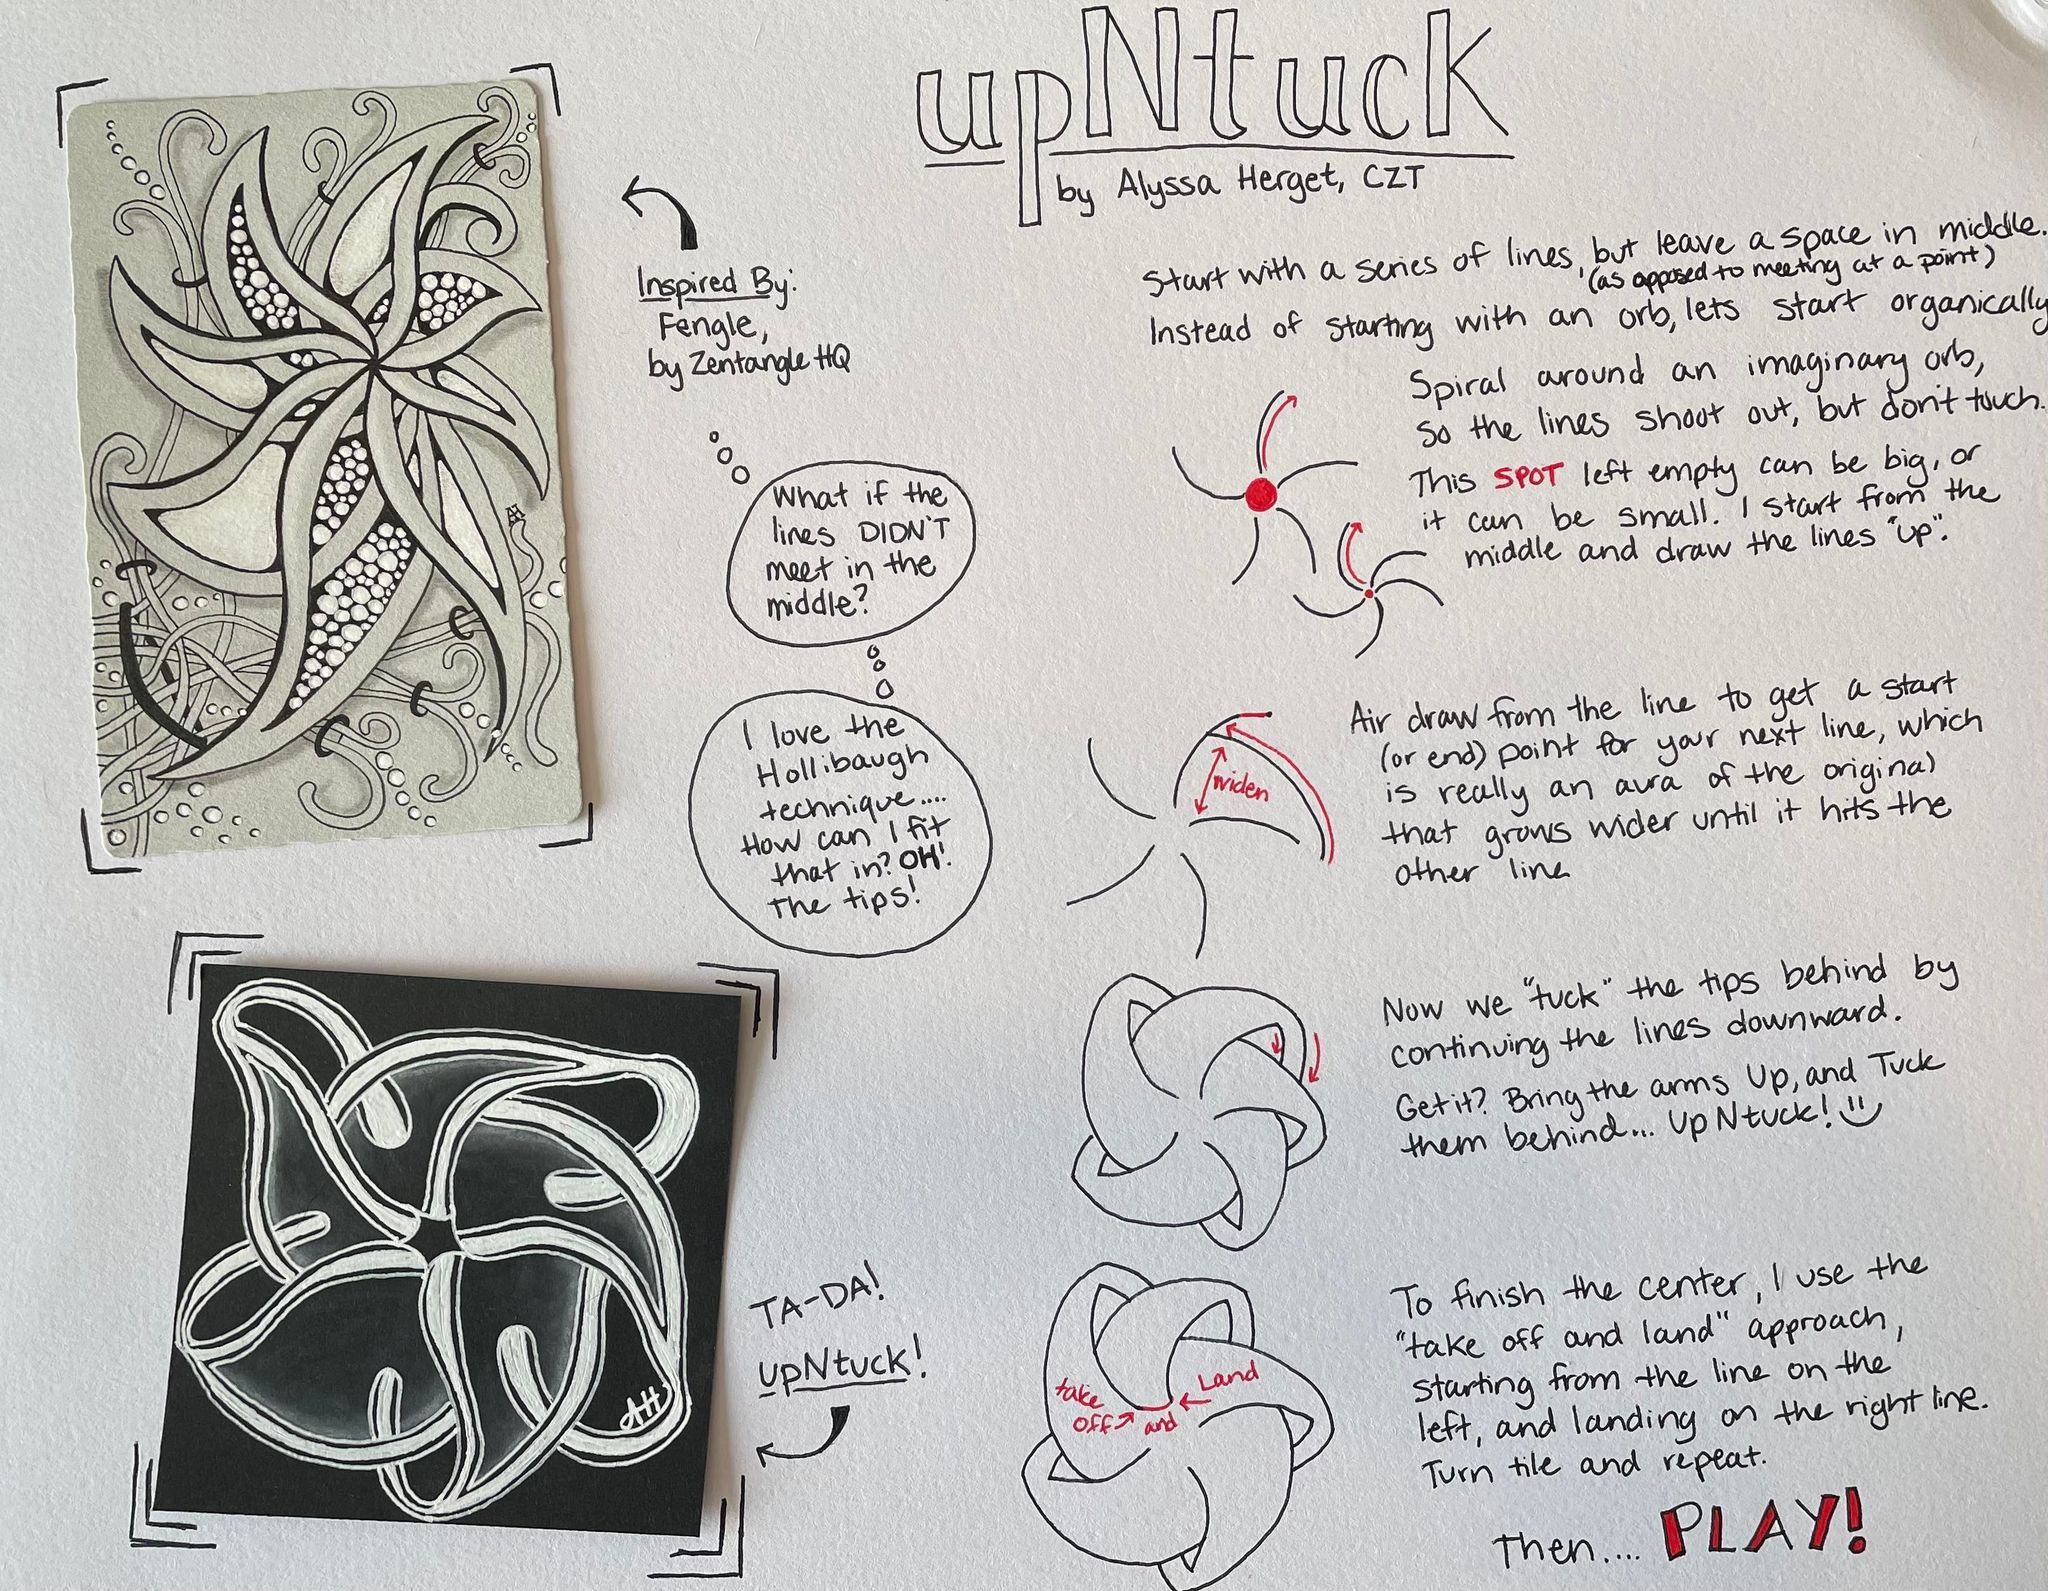 upNtuck
by Alyssa Herget, CZT
Inspired By:
Fengle,
by Zentangle HQ
What if the
lines DIDN'T
meet in the
middle?
I love the
Hollibaugh
technique....
How can I fit
that in? OH!
The tips!
Start with a series of lines, but leave a space in middle.
(as opposed to meeting at a point)
Instead of starting with an orb, lets start organically
Spiral around an imaginary orb,
so the lines shoot out, but don't touch.
This SPOT left empty can be big, or
it can be small. I start from the
middle and draw the lines "up".
Air draw from the line to get a start
(or end) point for your next line, which
is really an aura of the original
that grows wider until it hits the
other line
widen
Now we "tuck" the tips behind by
continuing the lines downward.
Get it? Bring the arms Up, and Tuck
them behind... UpNtuck!
To finish the center, I use the
"take off and land" approach,
starting from the line on the
left, and landing on the right line.
Turn tile and repeat.
take
off
and
Land
Then.... PLAY!
TA-DA!
upNtuck!
AH
AH